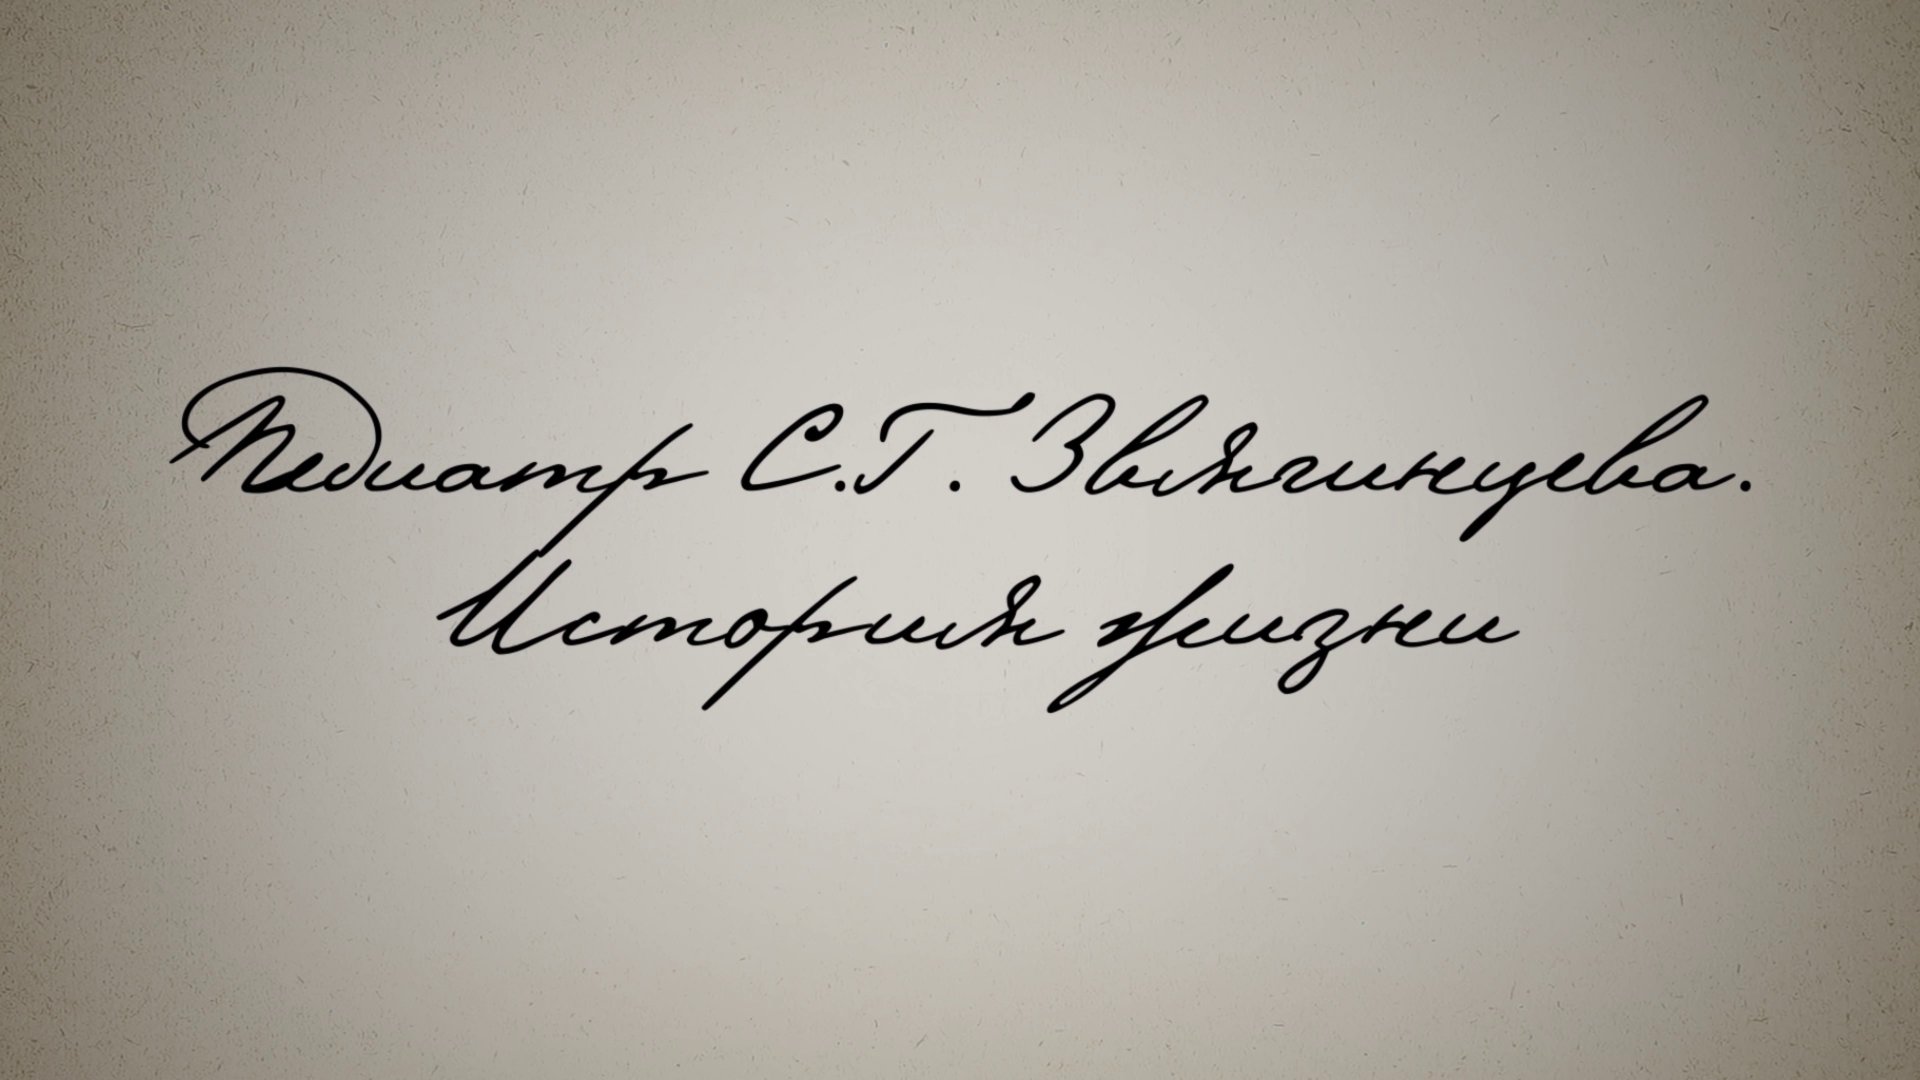 Педиатр С.Г. Звягинцева.
История жизни